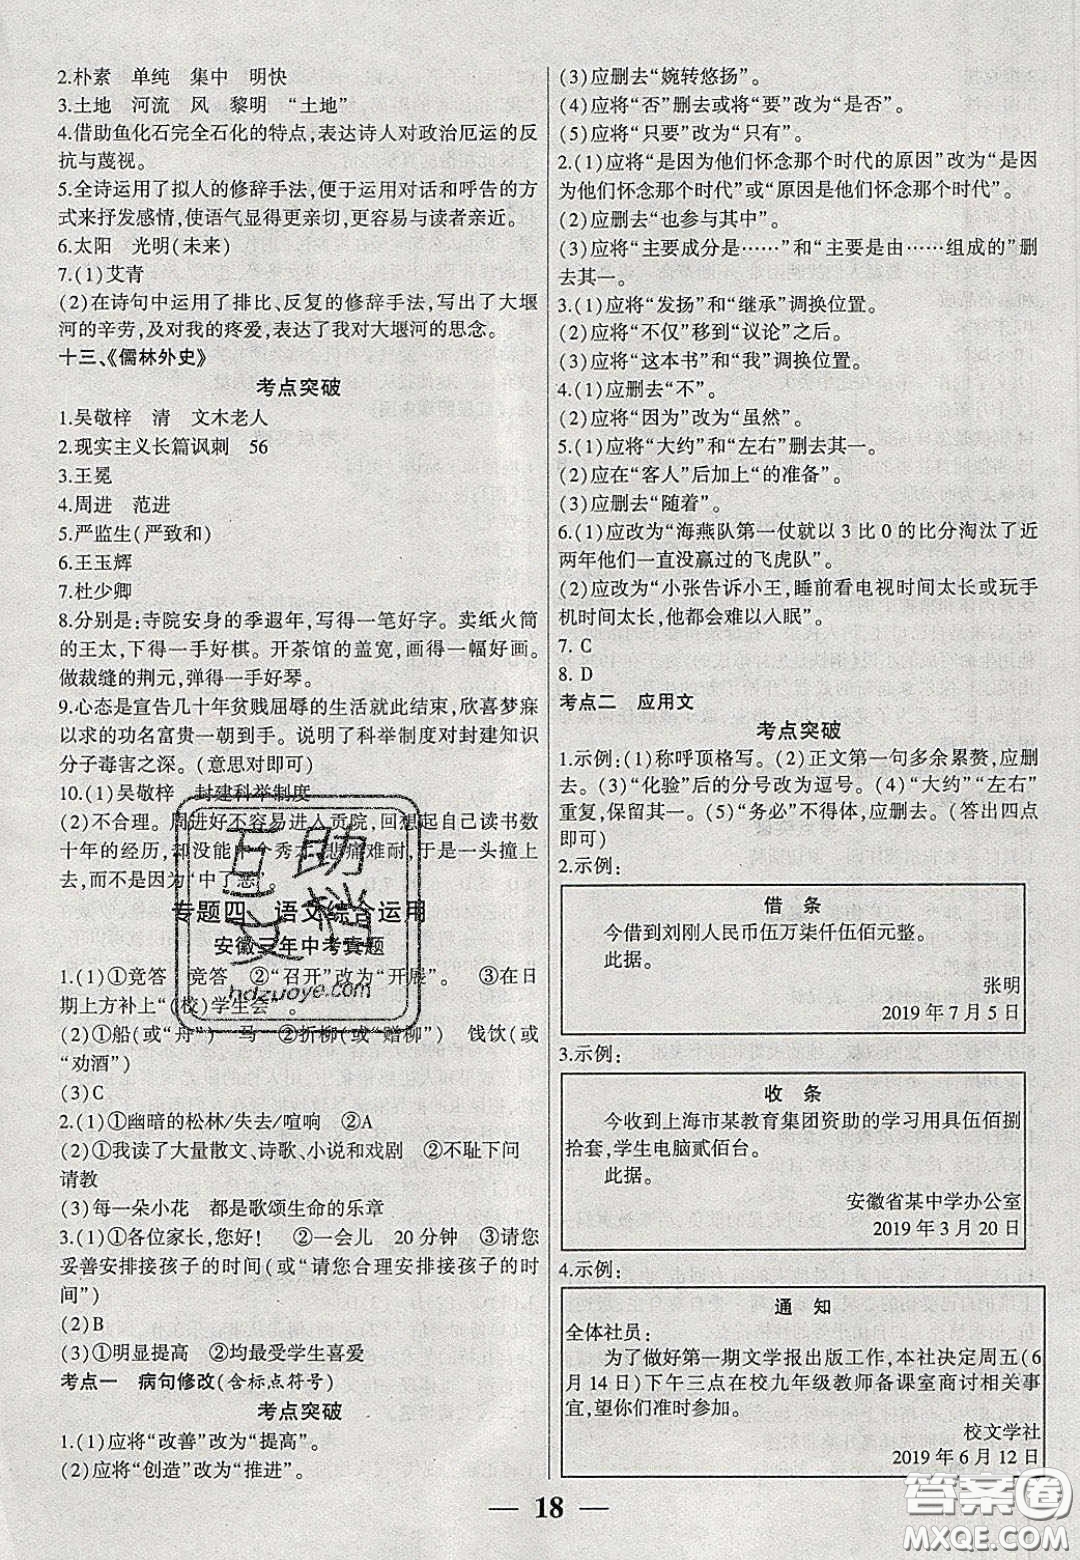 2.朴素　单纯　集中　明快
3.土地　河流　风　黎明　“土地”
4.借助鱼化石完全石化的特点,表达诗人对政治厄运的反
抗与蔑视。
5.全诗运用了拟人的修辞手法,便于运用对话和呼告的方
式来抒发感情,使语气显得更亲切,更容易与读者亲近。
6.太阳　光明(未来)
7.(1)艾青
(2)在诗句中运用了排比、反复的修辞手法,写出了大堰
河的辛劳,及对我的疼爱,表达了我对大堰河的思念。
十三、《儒林外史》
考点突破
1.吴敬梓　清　文木老人
2.现实主义长篇讽刺　56
3.王冕
4.周进　范进
5.严监生(严致和)
6.王玉辉
7.杜少卿
8.分别是:寺院安身的季遐年,写得一笔好字。卖纸火筒
的王太,下得一手好棋。开茶馆的盖宽,画得一幅好画。
做裁缝的荆元,弹得一手好琴。
9.心态是宣告几十年贫贱屈辱的生活就此结束,欣喜梦寐
以求的功名富贵一朝到手。说明了科举制度对封建知识
分子毒害之深。(意思对即可)
10.(1)吴敬梓　封建科举制度
(2)不合理。周进好不容易进入贡院,回想起自己读书数
十年的经历,却没能中个秀才,悲痛难耐,于是一头撞上
去,而不是因为“中了恶”。
专题四　语文综合运用
安徽三年中考真题
1.(1)①竞答　竞答　②“召开”改为“开展”。　③在日
期上方补上“(校)学生会”。
(2)①船(或“舟”)　马　②折柳(或“赠柳”)　饯饮(或
“劝酒”)
(3)C
2.(1)①幽暗的松林/失去/喧响　②A
(2)①我读了大量散文、诗歌、小说和戏剧　②不耻下问
请教
(3)每一朵小花　都是歌颂生命的乐章
3.(1)①各位家长,您好!　②一会儿　20分钟　③请您
妥善安排接孩子的时间(或“请您合理安排接孩子的时
间”)
(2)B
(3)①明显提高　②均最受学生喜爱
考点一　病句修改(含标点符号)
考点突破
1.(1)应将“改善”改为“提高”。
(2)应将“创造”改为“推进”。
(3)应删去“婉转悠扬”。
(4)应将“否”删去或将“要”改为“是否”。
(5)应将“只要”改为“只有”。
2.(1)应将“是因为他们怀念那个时代的原因”改为“是因
为他们怀念那个时代”或“原因是他们怀念那个时代”。
(2)应删去“也参与其中”。
(3)应将“主要成分是……”和“主要是由……组成的”删
去其一。
3.(1)应将“发扬”和“继承”调换位置。
(2)应将“不仅”移到“议论”之后。
(3)应将“这本书”和“我”调换位置。
4.(1)应删去“不”。
(2)应将“因为”改为“虽然”。
5.(1)应将“大约”和“左右”删去其一。
(2)应在“客人”后加上“的准备”。
(3)应删去“随着”。
6.(1)应改为“海燕队第一仗就以3比0的比分淘汰了近
两年他们一直没赢过的飞虎队”。
(2)应改为“小张告诉小王,睡前看电视时间太长或玩手
机时间太长,他都会难以入眠”。
7. C
8. D
考点二　应用文
考点突破
1.示例:(1)称呼顶格写。(2)正文第一句多余累赘,应删
去。(3)“化验”后的分号改为逗号。(4)“大约”“左右”
重复,保留其一。(5)“务必”不得体,应删去。(答出四点
即可)
2.示例:
借　条
今借到刘刚人民币伍万柒仟伍佰元整。
此据。
张明
2019年7月5日
3.示例:
收　条
今收到上海市某教育集团资助的学习用具伍佰捌
拾套,学生电脑贰佰台。
此据。
安徽省某中学办公室
2019年3月20日
4.示例:
通　知
全体社员:
为了做好第一期文学报出版工作,本社决定周五(6
月14日)下午三点在校九年级教师备课室商讨相关事
宜,望你们准时参加。
校文学社
2019年6月12日
18
互助
文档
hdzuoye.com
答案圈
MXQE.COM